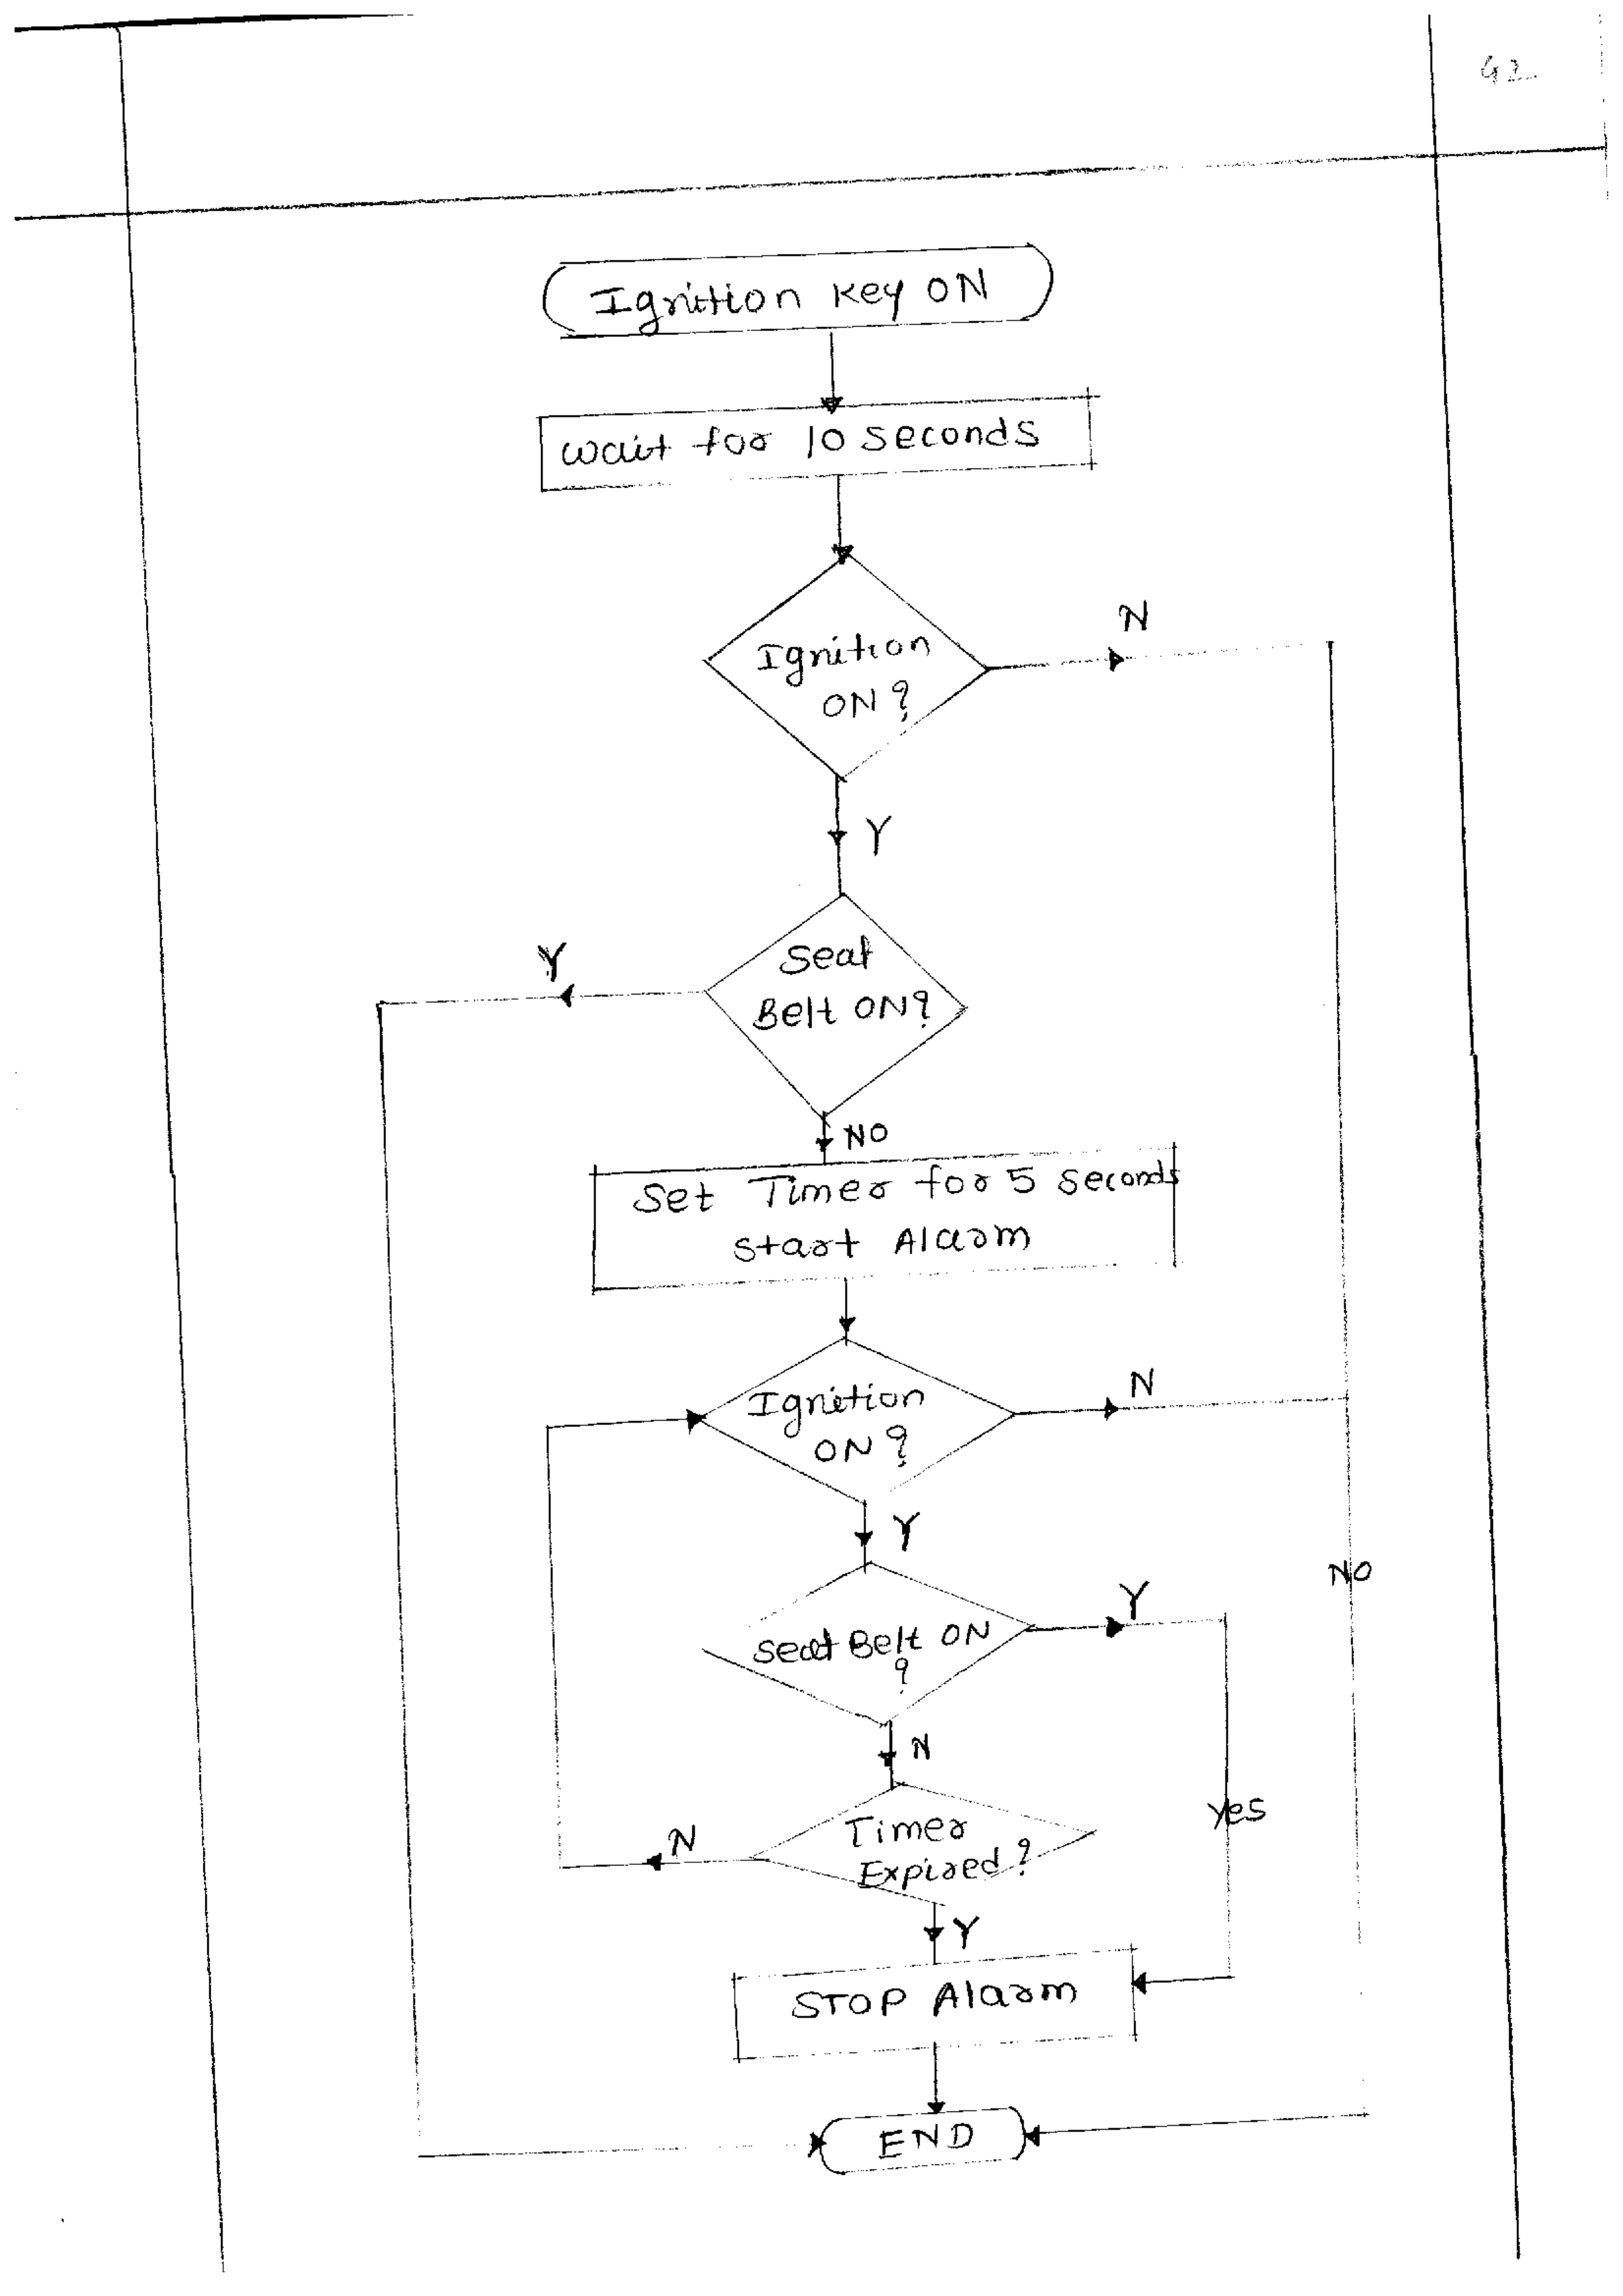 42
Ignition key ON
wait for 10 seconds
N
Ignition
ON?
Y
Y
Seat
Belt ON?
NO
Set Timer for 5 seconds
start Alarm
N
Ignition
ON?
Y
NO
Y
Seat Belt ON
?
N
yes
N
Timer
Expired?
Y
STOP Alarm
END